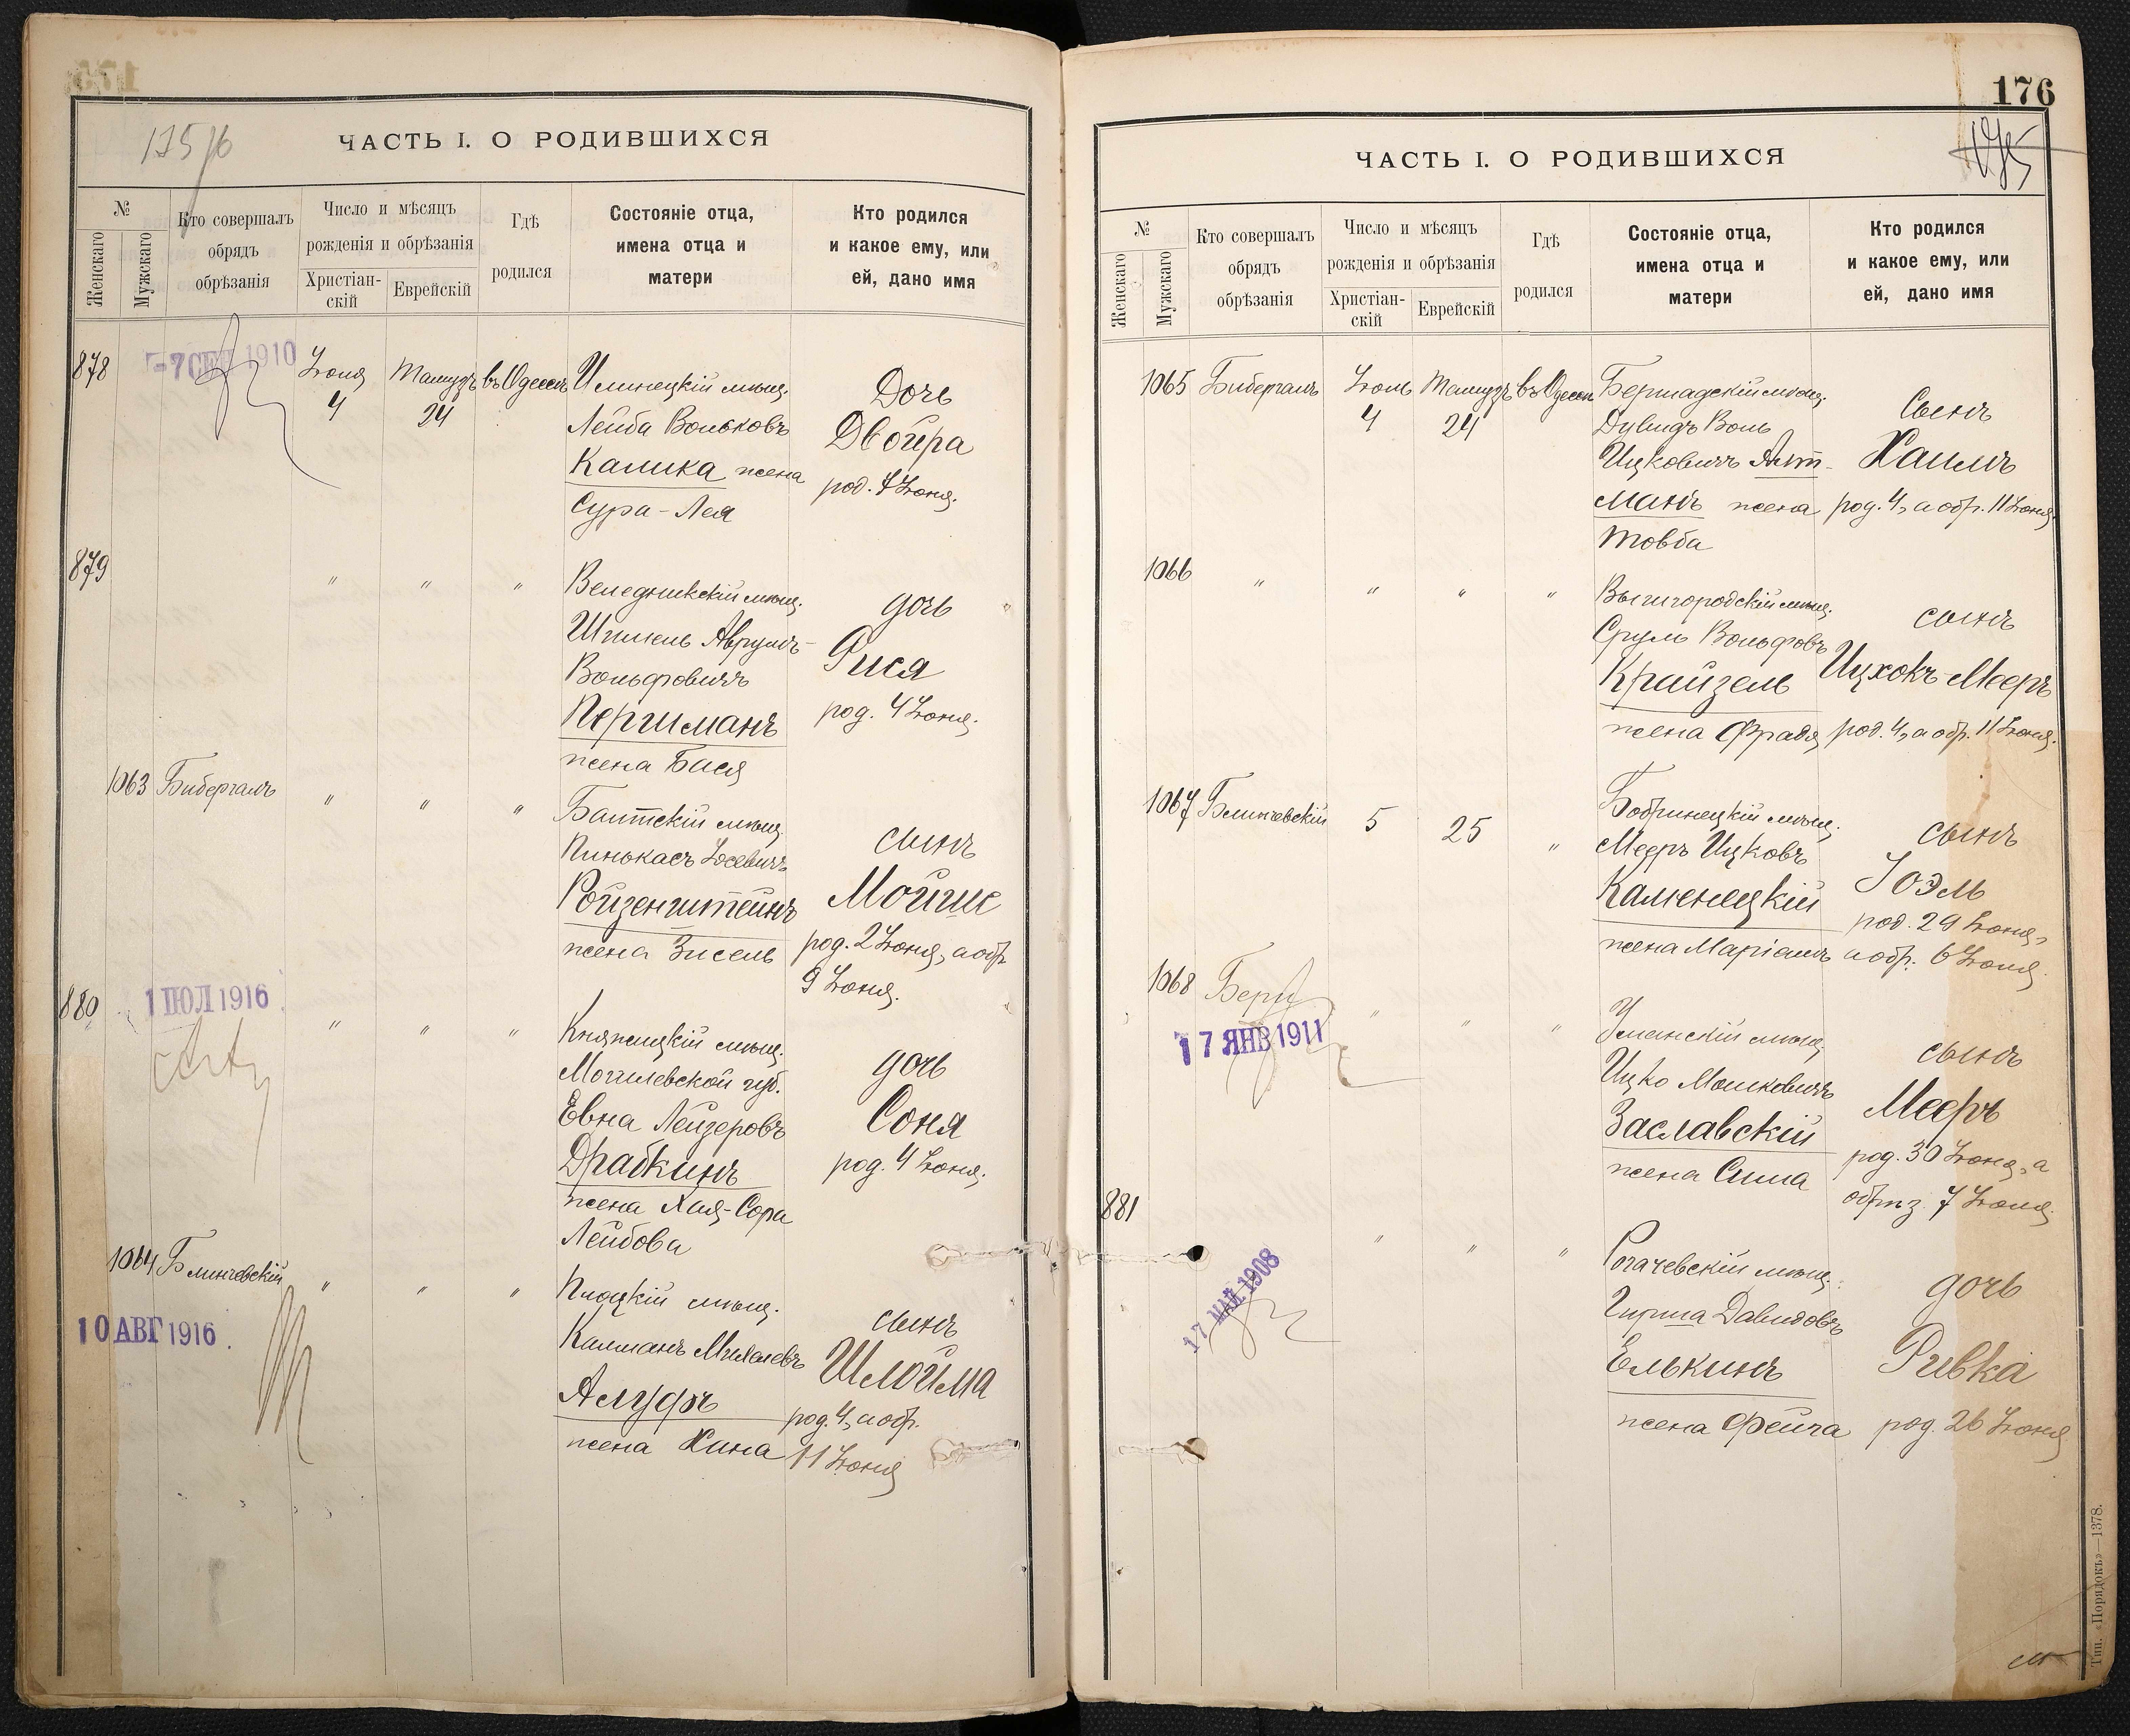 175/6
ЧАСТЬ I. О РОДИВШИХСЯ
№
Женскаго
Мужскаго
Кто совершалъ
обрядъ
обрѣзанія
Число и мѣсяцъ
рожденія и обрѣзанія
Христіан-
скій
Еврейскій
Гдѣ
родился
Состояніе отца,
имена отца и
матери
Кто родился
и какое ему, или
ей, дано имя
878
-7 СЕН 1910
Іюля
4
Тамузъ
24
въ Одессѣ
Илинецкій мѣщ.
Лейба Вольковъ
Калика жена
Сура-Лея
Дочь
Двойра
род. 4 Іюня.
879
" " "
Веледникскій мѣщ.
Шмиель Аврумъ-
Вольфовичъ
Перчиманъ
жена Бася
дочь
Рися
род. 4 Іюня.
1063 Бибергалъ
" " "
Балтскій мѣщ.
Пинькасъ Іосевичъ
Ройзенштейнъ
жена Зисель
сынъ
Мойше
род. 2 Іюня, а обр.
9 Іюня.
880
1 ІЮЛ 1916
" " "
Княжицкій мѣщ.
Могилевской губ.
Евна Лейзеровъ
Драбкинъ
жена Хая-Сора
Лейбова
дочь
Соня
род. 4 Іюня.
1064 Блинчевскій
10 АВГ 1916
" " "
Плоцкій мѣщ.
Калманъ Михелевъ
Алуфъ
жена Хина
сынъ
Шлойма
род. 4, а обр.
11 Іюня
176
175
ЧАСТЬ I. О РОДИВШИХСЯ
№
Женскаго
Мужскаго
Кто совершалъ
обрядъ
обрѣзанія
Число и мѣсяцъ
рожденія и обрѣзанія
Христіан-
скій
Еврейскій
Гдѣ
родился
Состояніе отца,
имена отца и
матери
Кто родился
и какое ему, или
ей, дано имя
1065 Бибергалъ
Іюль
4
Тамузъ
24
въ Одессѣ
Бершадскій мѣщ.
Дувидъ Воль
Ицковичъ Альт-
манъ жена
Товба
Сынъ
Хаимъ
род. 4, а обр. 11 Іюня.
1066
" " " "
Вышгородскій мѣщ.
Сруль Вольфовъ
Крайзель
жена Фрадя
сынъ
Ицхокъ-Мееръ
род. 4, а обр. 11 Іюня.
1067 Блинчевскій
5
25
"
Бобринецкій мѣщ.
Мееръ Ицковъ
Каменецкій
жена Маріамъ
сынъ
Іоэль
род. 29 Іюня,
а обр. 6 Іюля.
1068
17 ЯНВ 1911
" " "
Уманскій мѣщ.
Ицко Мошковичъ
Заславскій
жена Сима
сынъ
Мееръ
род. 30 Іюня, а
обрѣз. 7 Іюля.
881
17 МАЙ 1908
" " "
Рогачевскій мѣщ.
Гирша Давидовъ
Елькинъ
жена Фейга
дочь
Ривка
род. 26 Іюня
Тип. «Порядокъ»—1378.